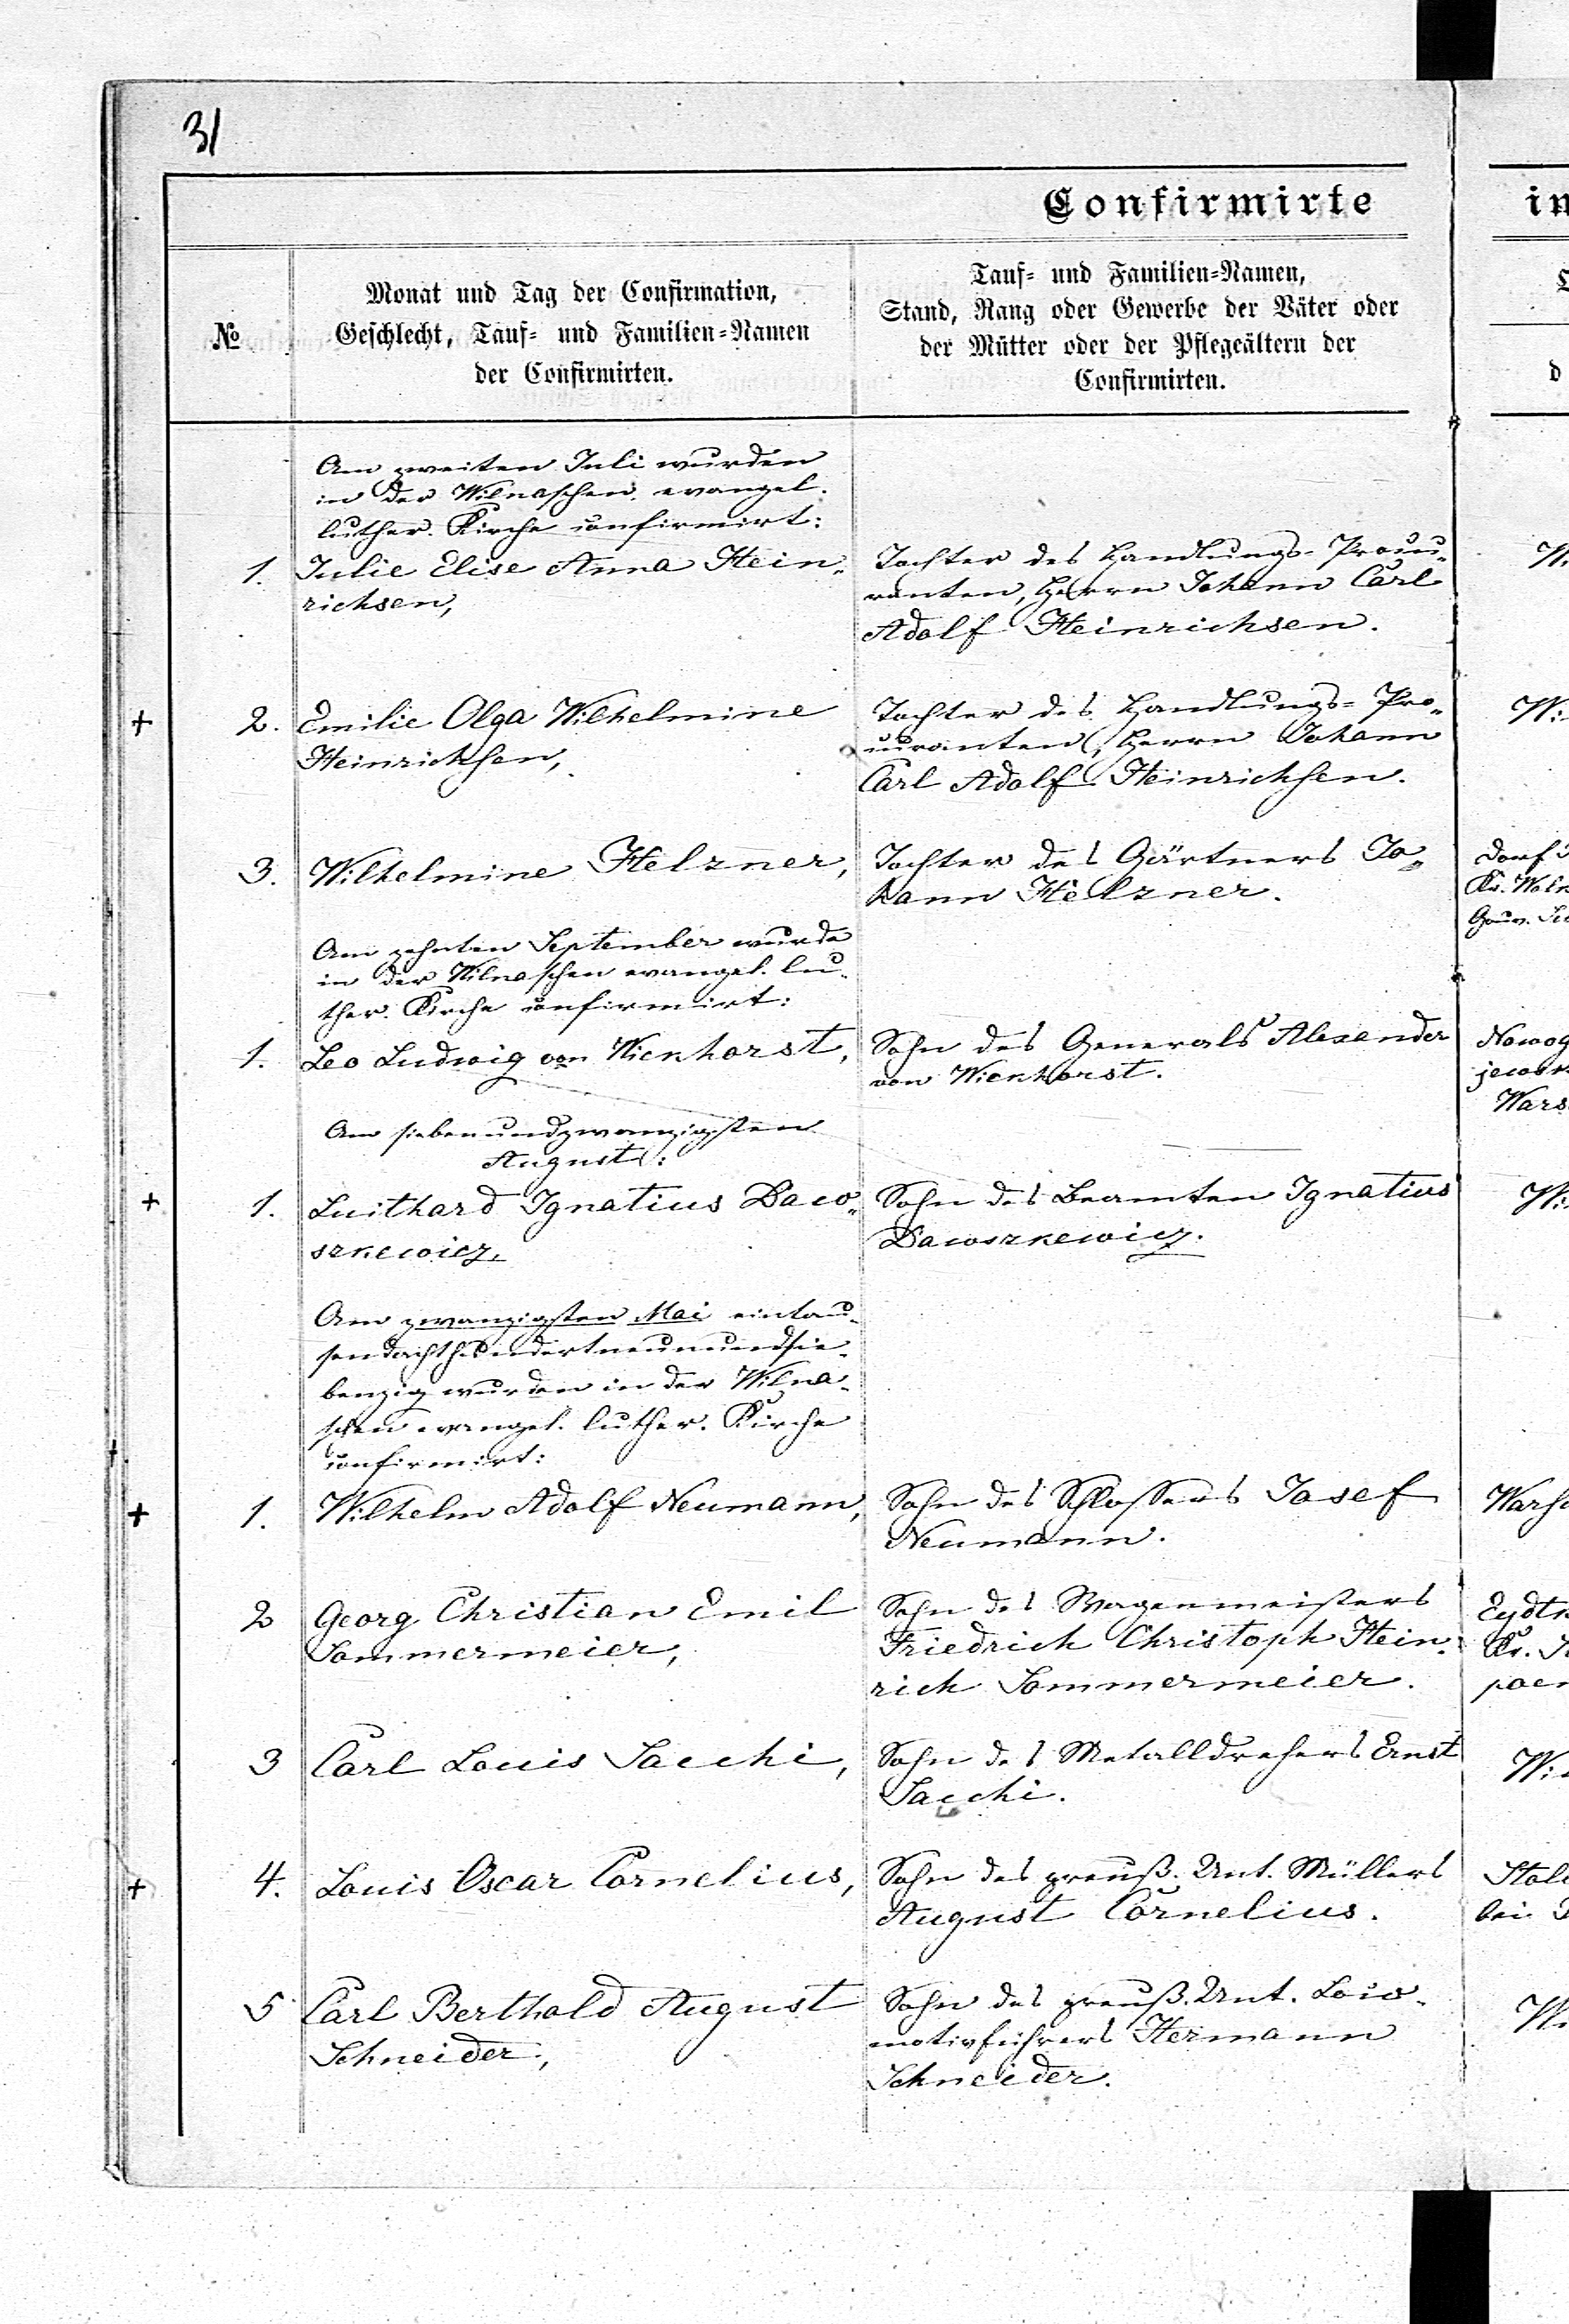 31
Confirmirte
in
№
Monat und Tag der Confirmation,
Geschlecht, Tauf- und Familien-Namen
der Confirmirten.
Tauf- und Familien-Namen,
Stand, Rang oder Gewerbe der Väter oder
der Mütter oder der Pflegeältern der
Confirmirten.
d
Am zweiten Juli wurden
in der Wilnaschen evangel.
luther. Kirche confirmirt:
1. Julie Elise Anna Hein-
richsen,
Tochter des Handlungs-Procu-
ranten, Herrn Johann Carl
Adolf Heinrichsen.
W
+ 2. Emilie Olga Wilhelmine
Heinrichsen,
Tochter des Handlungs-Pro-
curanten, Herrn Johann
Carl Adolf Heinrichsen.
Wi
3. Wilhelmine Helzner,
Tochter des Gärtners Jo-
hann Helzner.
Dorf
Kr. Wolk
Gouv.
Am zehnten September wurde
in der Wilnaschen evangel. lu-
ther. Kirche confirmirt:
1. Leo Ludwig von Wienhorst,
Sohn des Generals Alexander
von Wienhorst.
Nowog
jewsk
Wars
Am siebenundzwanzigsten
August:
+ 1. Luithard Ignatius Daw-
szkewicz,
Sohn des Beamten Ignatius
Dawszkewicz.
Wi
Am zwanzigsten Mai eintau-
sendachthundertneunundsie-
benzig wurden in der Wilna-
schen evangel. luther. Kirche
confirmirt:
+ 1. Wilhelm Adolf Neumann,
Sohn des Schlossers Josef
Neumann.
Warsc
2 Georg Christian Emil
Sommermeier,
Sohn des Wagenmeisters
Friedrich Christoph Hein-
rich Sommermeier.
Eydtk
Kr.
3 Carl Louis Sacchi,
Sohn des Metalldrehers Ernst
Sacchi.
Wi
+ 4. Louis Oscar Cornelius,
Sohn des preuß. Unt. Müllers
August Cornelius.
bei
5 Carl Berthold August
Schneider,
Sohn des preuß. Unt. Loco-
motivführers Hermann
Schneider.
W